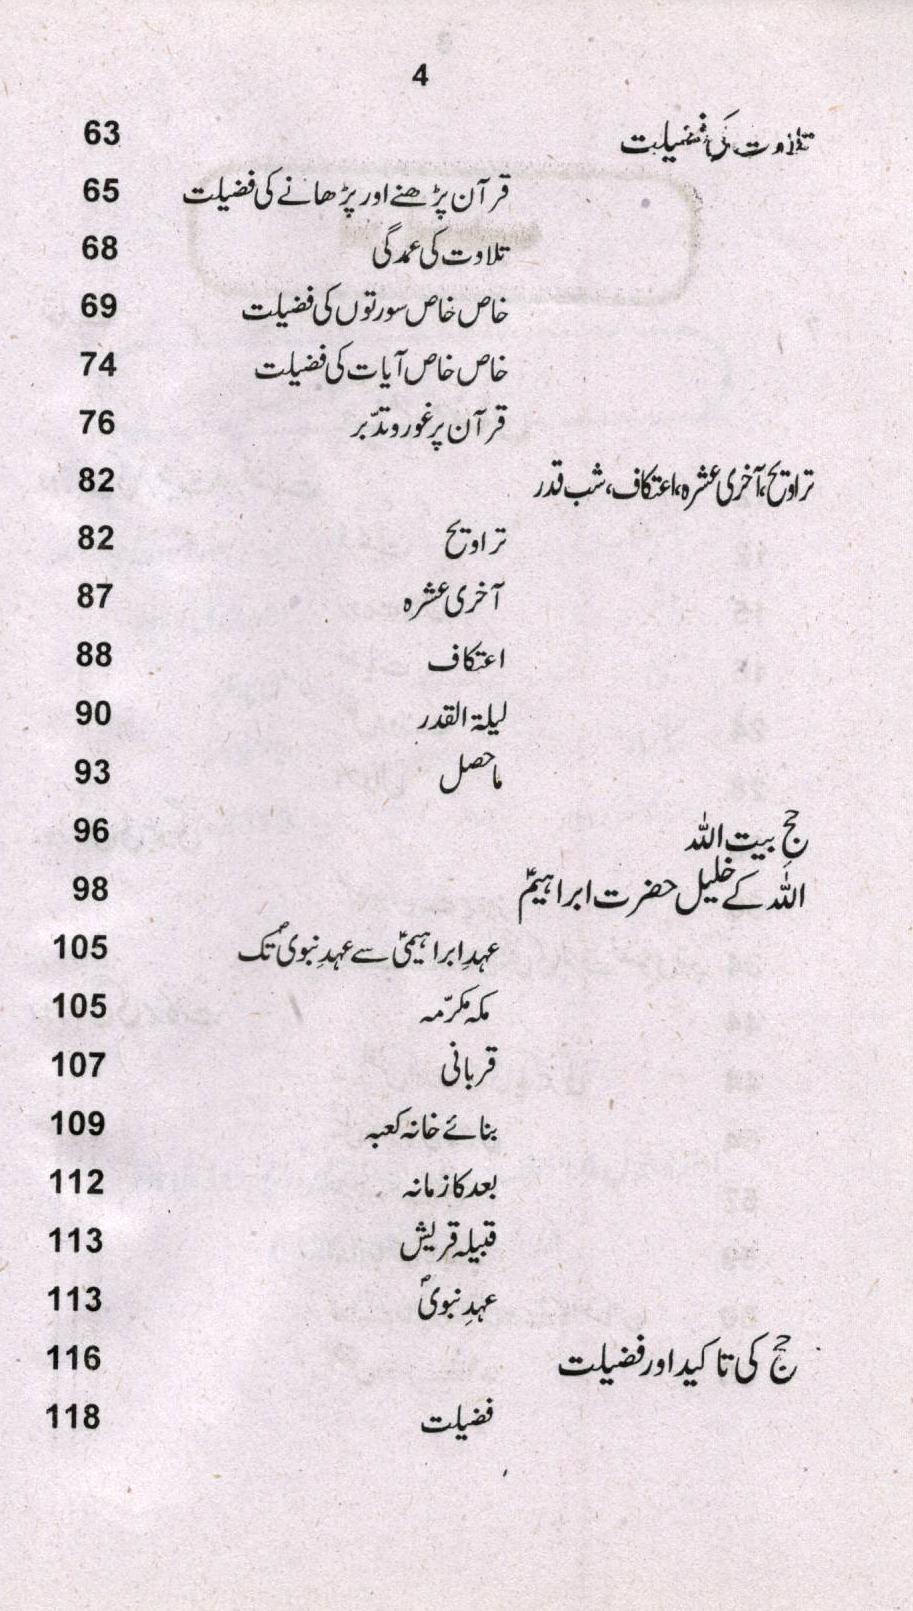 4
تلاوت کی فضیلت 63
قرآن پڑھنے اور پڑھانے کی فضیلت 65
تلاوت کی عمدگی 68
خاص خاص سورتوں کی فضیلت 69
خاص خاص آیات کی فضیلت 74
قرآن پر غور و تدبّر 76
تراویح، آخری عشرہ، اعتکاف، شب قدر 82
تراویح 82
آخری عشرہ 87
اعتکاف 88
لیلۃ القدر 90
ماحصل 93
حجِ بیت اللہ 96
اللہ کے خلیل حضرت ابراہیمؑ 98
عہدِ ابراہیمیؑ سے عہدِ نبویؐ تک 105
مکہ مکرّمہ 105
قربانی 107
بنائے خانہ کعبہ 109
بعد کا زمانہ 112
قبیلہ قریش 113
عہدِ نبویؐ 113
حج کی تاکید اور فضیلت 116
فضیلت 118